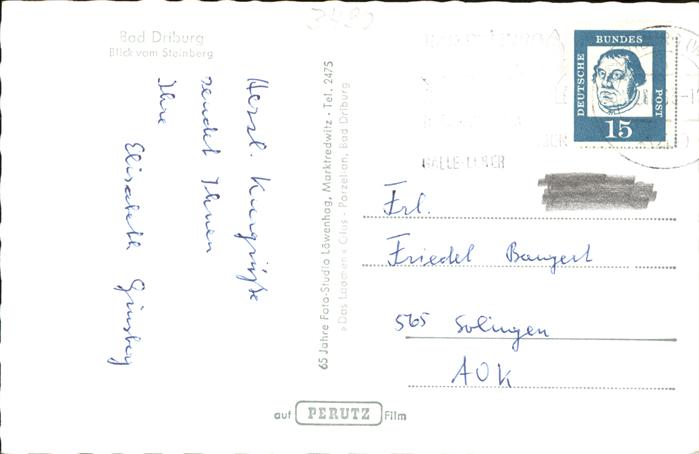 Bad Driburg
Blick vom Steinberg
Herzl. Kurgrüße
sendet Ihnen
Ihre
Elisabeth Ginsberg
65 Jahre Foto-Studio Löwenhag, Marktredwitz · Tel. 2475
»Das Lädchen« Glas - Porzellan, Bad Driburg
DEUTSCHE
BUNDES
POST
15
Frl.
Friedel Bangert
565 Solingen
AOK
auf PERUTZ Film